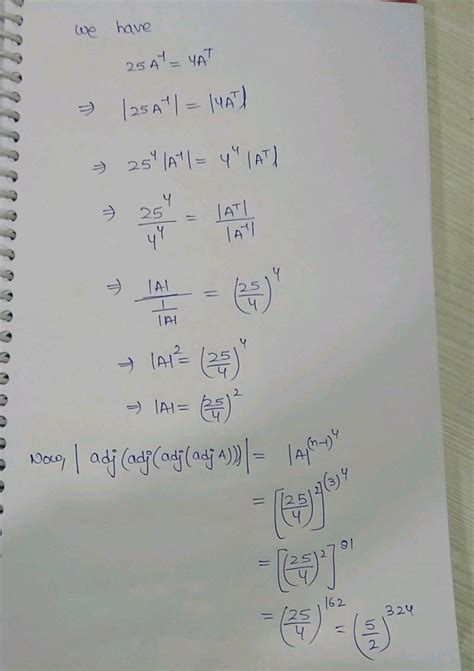 we have
25A⁻¹ = 4Aᵀ
⇒ |25A⁻¹| = |4Aᵀ|
⇒ 25⁴|A⁻¹| = 4⁴ |Aᵀ|
⇒ 25⁴/4⁴ = |Aᵀ|/|A⁻¹|
⇒ |A|/(1/|A|) = (25/4)⁴
⇒ |A|² = (25/4)⁴
⇒ |A| = (25/4)²
Now, |adj(adj(adj(adj A)))| = |A|^(n-1)^4
= [(25/4)²]^(3)^4
= [(25/4)²]^81
= (25/4)^162 = (5/2)^324